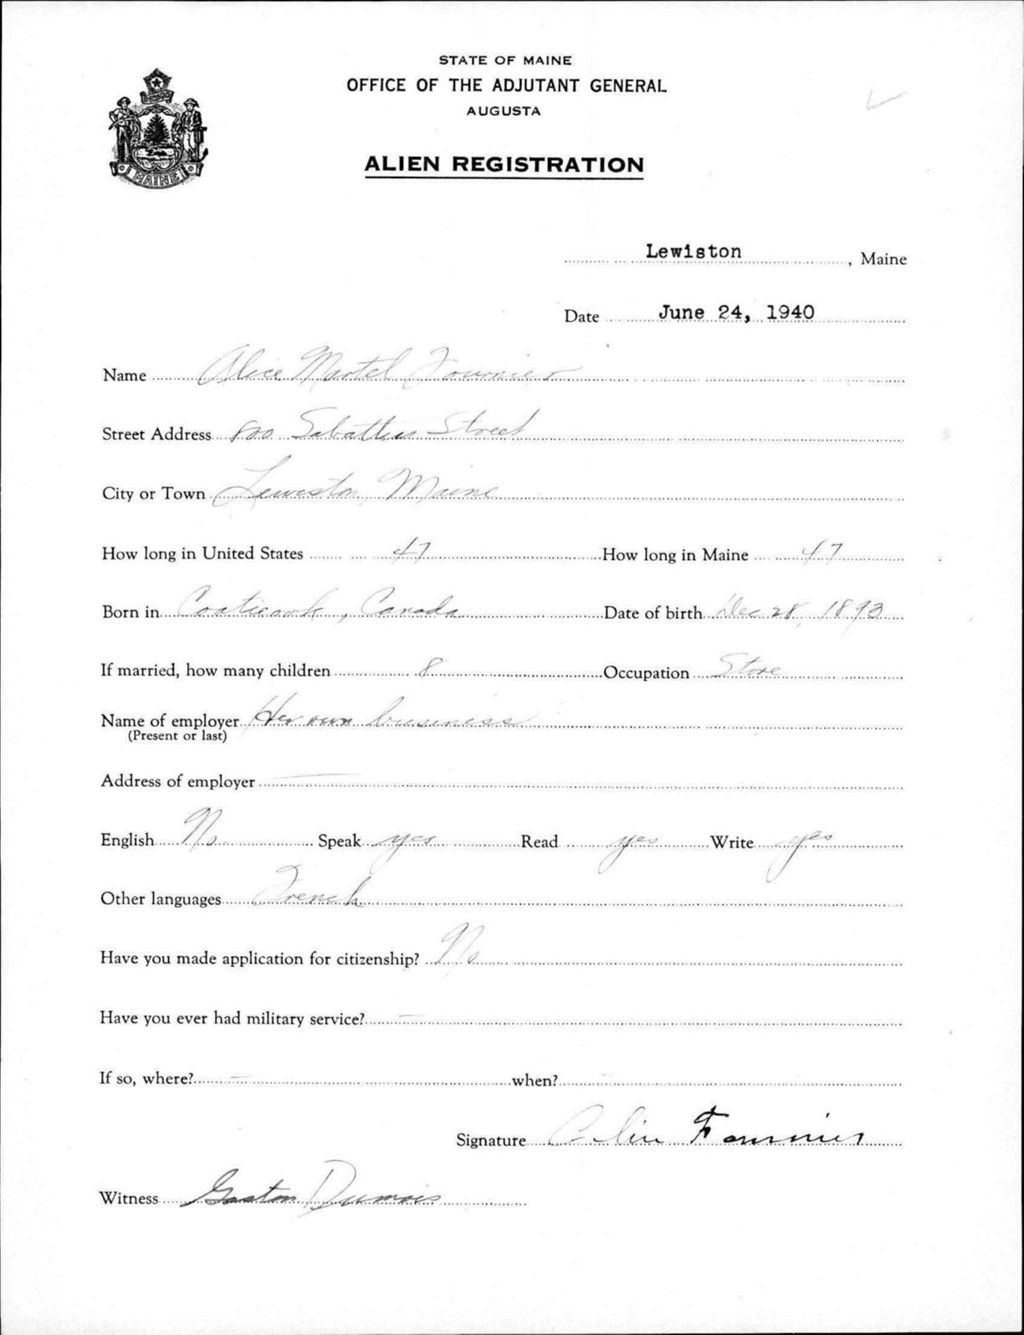 STATE OF MAINE
OFFICE OF THE ADJUTANT GENERAL
AUGUSTA
ALIEN REGISTRATION
MAINE
Lewiston, Maine
Date June 24, 1940
Name Alice Martel Fournier
Street Address 800 Sabattus Street
City or Town Lewiston, Maine
How long in United States 47 How long in Maine 47
Born in Coaticook, Canada Date of birth Dec 28, 1893
If married, how many children 8 Occupation Store
Name of employer Her own business
(Present or last)
Address of employer —
English No Speak yes Read yes Write yes
Other languages French
Have you made application for citizenship? No
Have you ever had military service? —
If so, where? — when? —
Signature Fournier
Witness Gaston Dumais